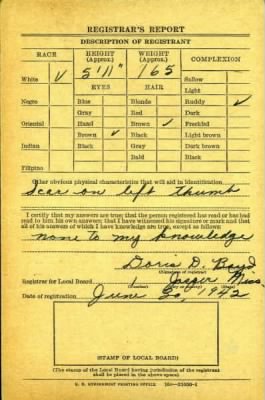 REGISTRAR'S REPORT
DESCRIPTION OF REGISTRANT
RACE HEIGHT (Approx.) WEIGHT (Approx.) COMPLEXION
White ✓ 5'11" 165 Sallow
Light
EYES HAIR
Negro Blue Blonde Ruddy ✓
Gray Red Dark
Oriental Hazel Brown ✓ Freckled
Brown ✓ Black Light brown
Indian Black Gray Dark brown
Bald Black
Filipino
Other obvious physical characteristics that will aid in identification
Scar on left thumb
I certify that my answers are true; that the person registered has read or has had
read to him his own answers; that I have witnessed his signature or mark and that
all of his answers of which I have knowledge are true, except as follows:
none to my knowledge
Doris D. Boyd
(Signature of registrar)
Registrar for Local Board 1 Jasper Miss
(Number) (City or county) (State)
Date of registration June 30, 1942
(STAMP OF LOCAL BOARD)
(The stamp of the Local Board having jurisdiction of the registrant
shall be placed in the above space)
U. S. GOVERNMENT PRINTING OFFICE